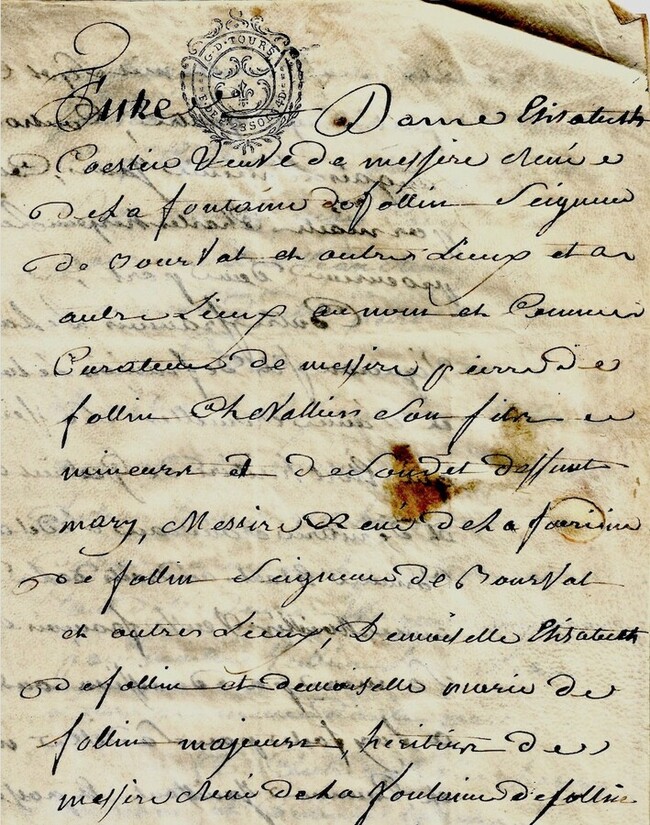 G·D·TOURS
Entre Dame Elisabeth
Veuve de messire René
de la fontaine de follin Seigneur
de Bourvat et autre Lieux et a
autre Lieux au nom et Comme
Curateur de messire pierre de
follin Chevallier Son fils
mineur et de Son dit deffunt
mary, Messire René de la
de follin Seigneur de Bourvat
et autres Lieux, Demoiselle Elisabeth
de follin et demoiselle marie de
follin majeurs, heritier de
messire René de la fontaine de follin